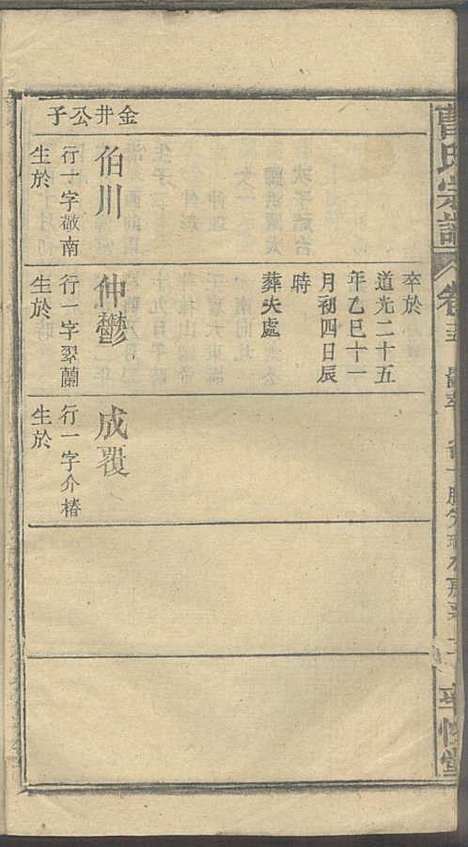 金井公子
伯川
行十字敬南
生於
卒於
道光二十五
年乙巳十一
月初四日辰
時
葬失處
仲鬱
行一字翠蘭
生於
成覆
行一字介椿
生於
曹氏宗譜
卷